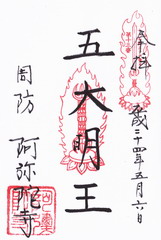 奉拝
平成二十四年五月六日
五大明王
周防
阿弥陀寺